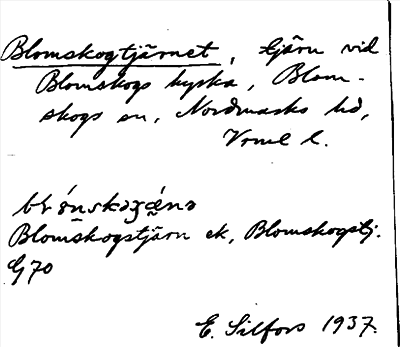 Blomskogtjärnet, tjärn vid
Blomskogs kyrka, Blom-
skogs sn, Nordmarks hd,
Vrml l.
Blomskogstjärn ek, Blomskogstj.
G70
E. Silfors 1937.